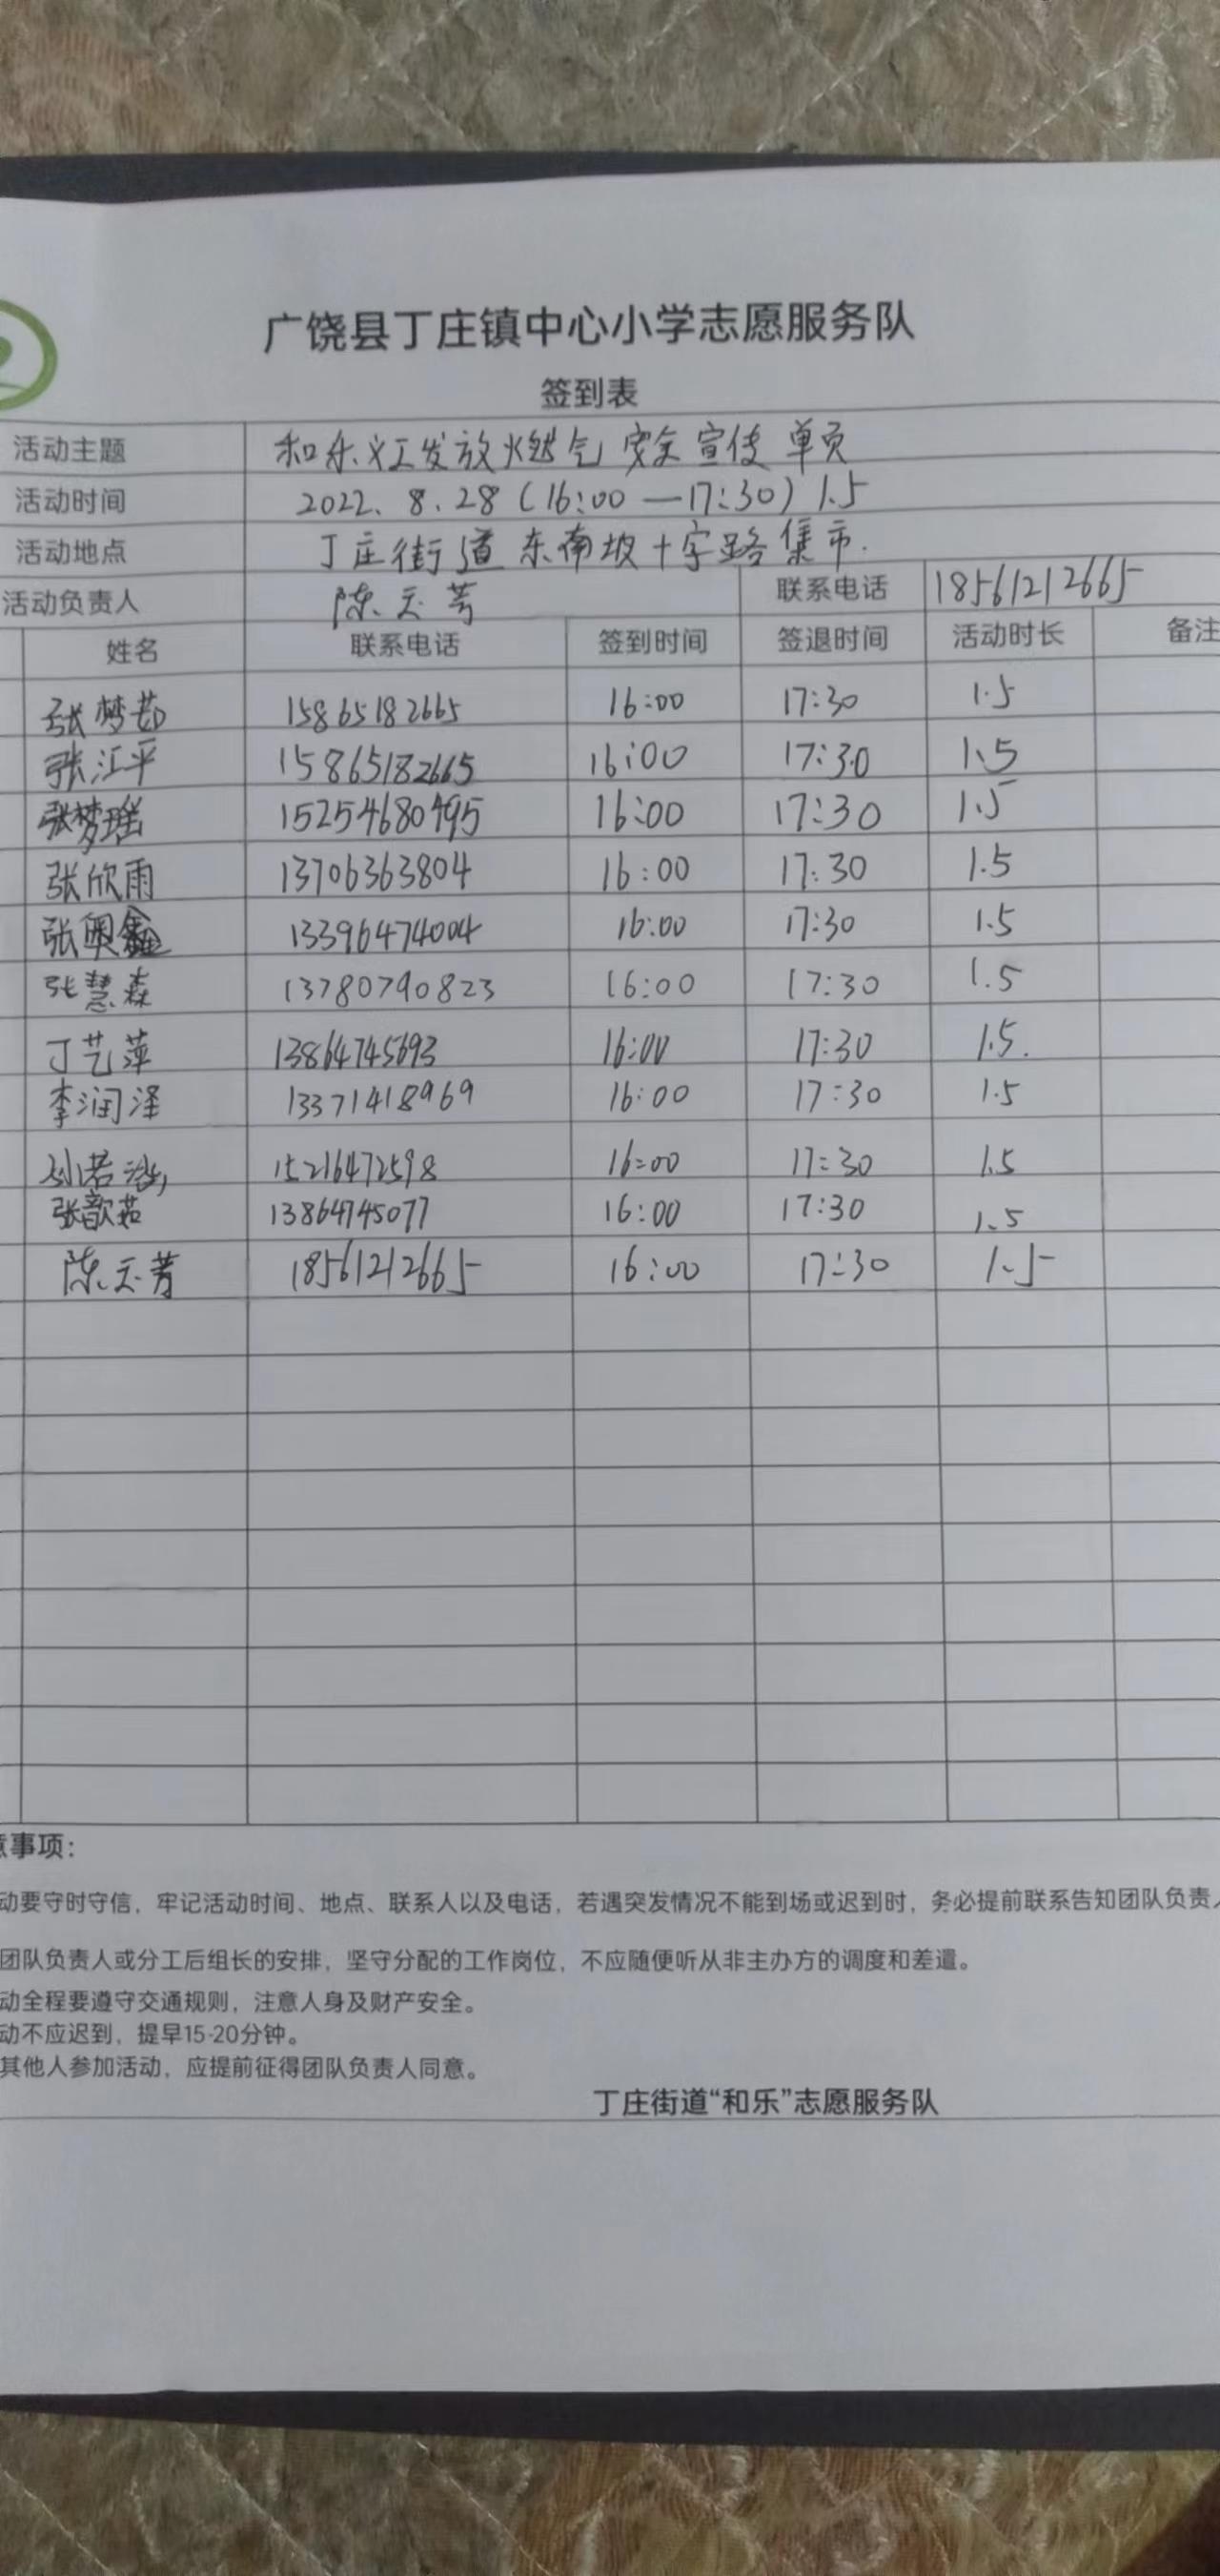 广饶县丁庄镇中心小学志愿服务队
签到表
活动主题 和乐义工发放燃气安全宣传单页
活动时间 2022.8.28(16:00—17:30)1.5
活动地点 丁庄街道东南坡十字路集市.
活动负责人 陈云芳 联系电话 18561212665
姓名 联系电话 签到时间 签退时间 活动时长 备注
张梦茹 15865182665 16:00 17:30 1.5
张江平 15865182665 16:00 17:30 1.5
张梦瑶 15254680495 16:00 17:30 1.5
张欣雨 13706363804 16:00 17:30 1.5
张奥鑫 13396474004 16:00 17:30 1.5
张慧森 13780790823 16:00 17:30 1.5
丁艺萍 13864745693 16:00 17:30 1.5.
李润泽 13371418969 16:00 17:30 1.5
刘若 15216472598 16:00 17:30 1.5
张歆茹 13864745077 16:00 17:30 1.5
陈云芳 18561212665 16:00 17:30 1.5
意事项:
动要守时守信，牢记活动时间、地点、联系人以及电话，若遇突发情况不能到场或迟到时，务必提前联系告知团队负责人
团队负责人或分工后组长的安排，坚守分配的工作岗位，不应随便听从非主办方的调度和差遣。
动全程要遵守交通规则，注意人身及财产安全。
动不应迟到，提早15-20分钟。
其他人参加活动，应提前征得团队负责人同意。
丁庄街道“和乐”志愿服务队